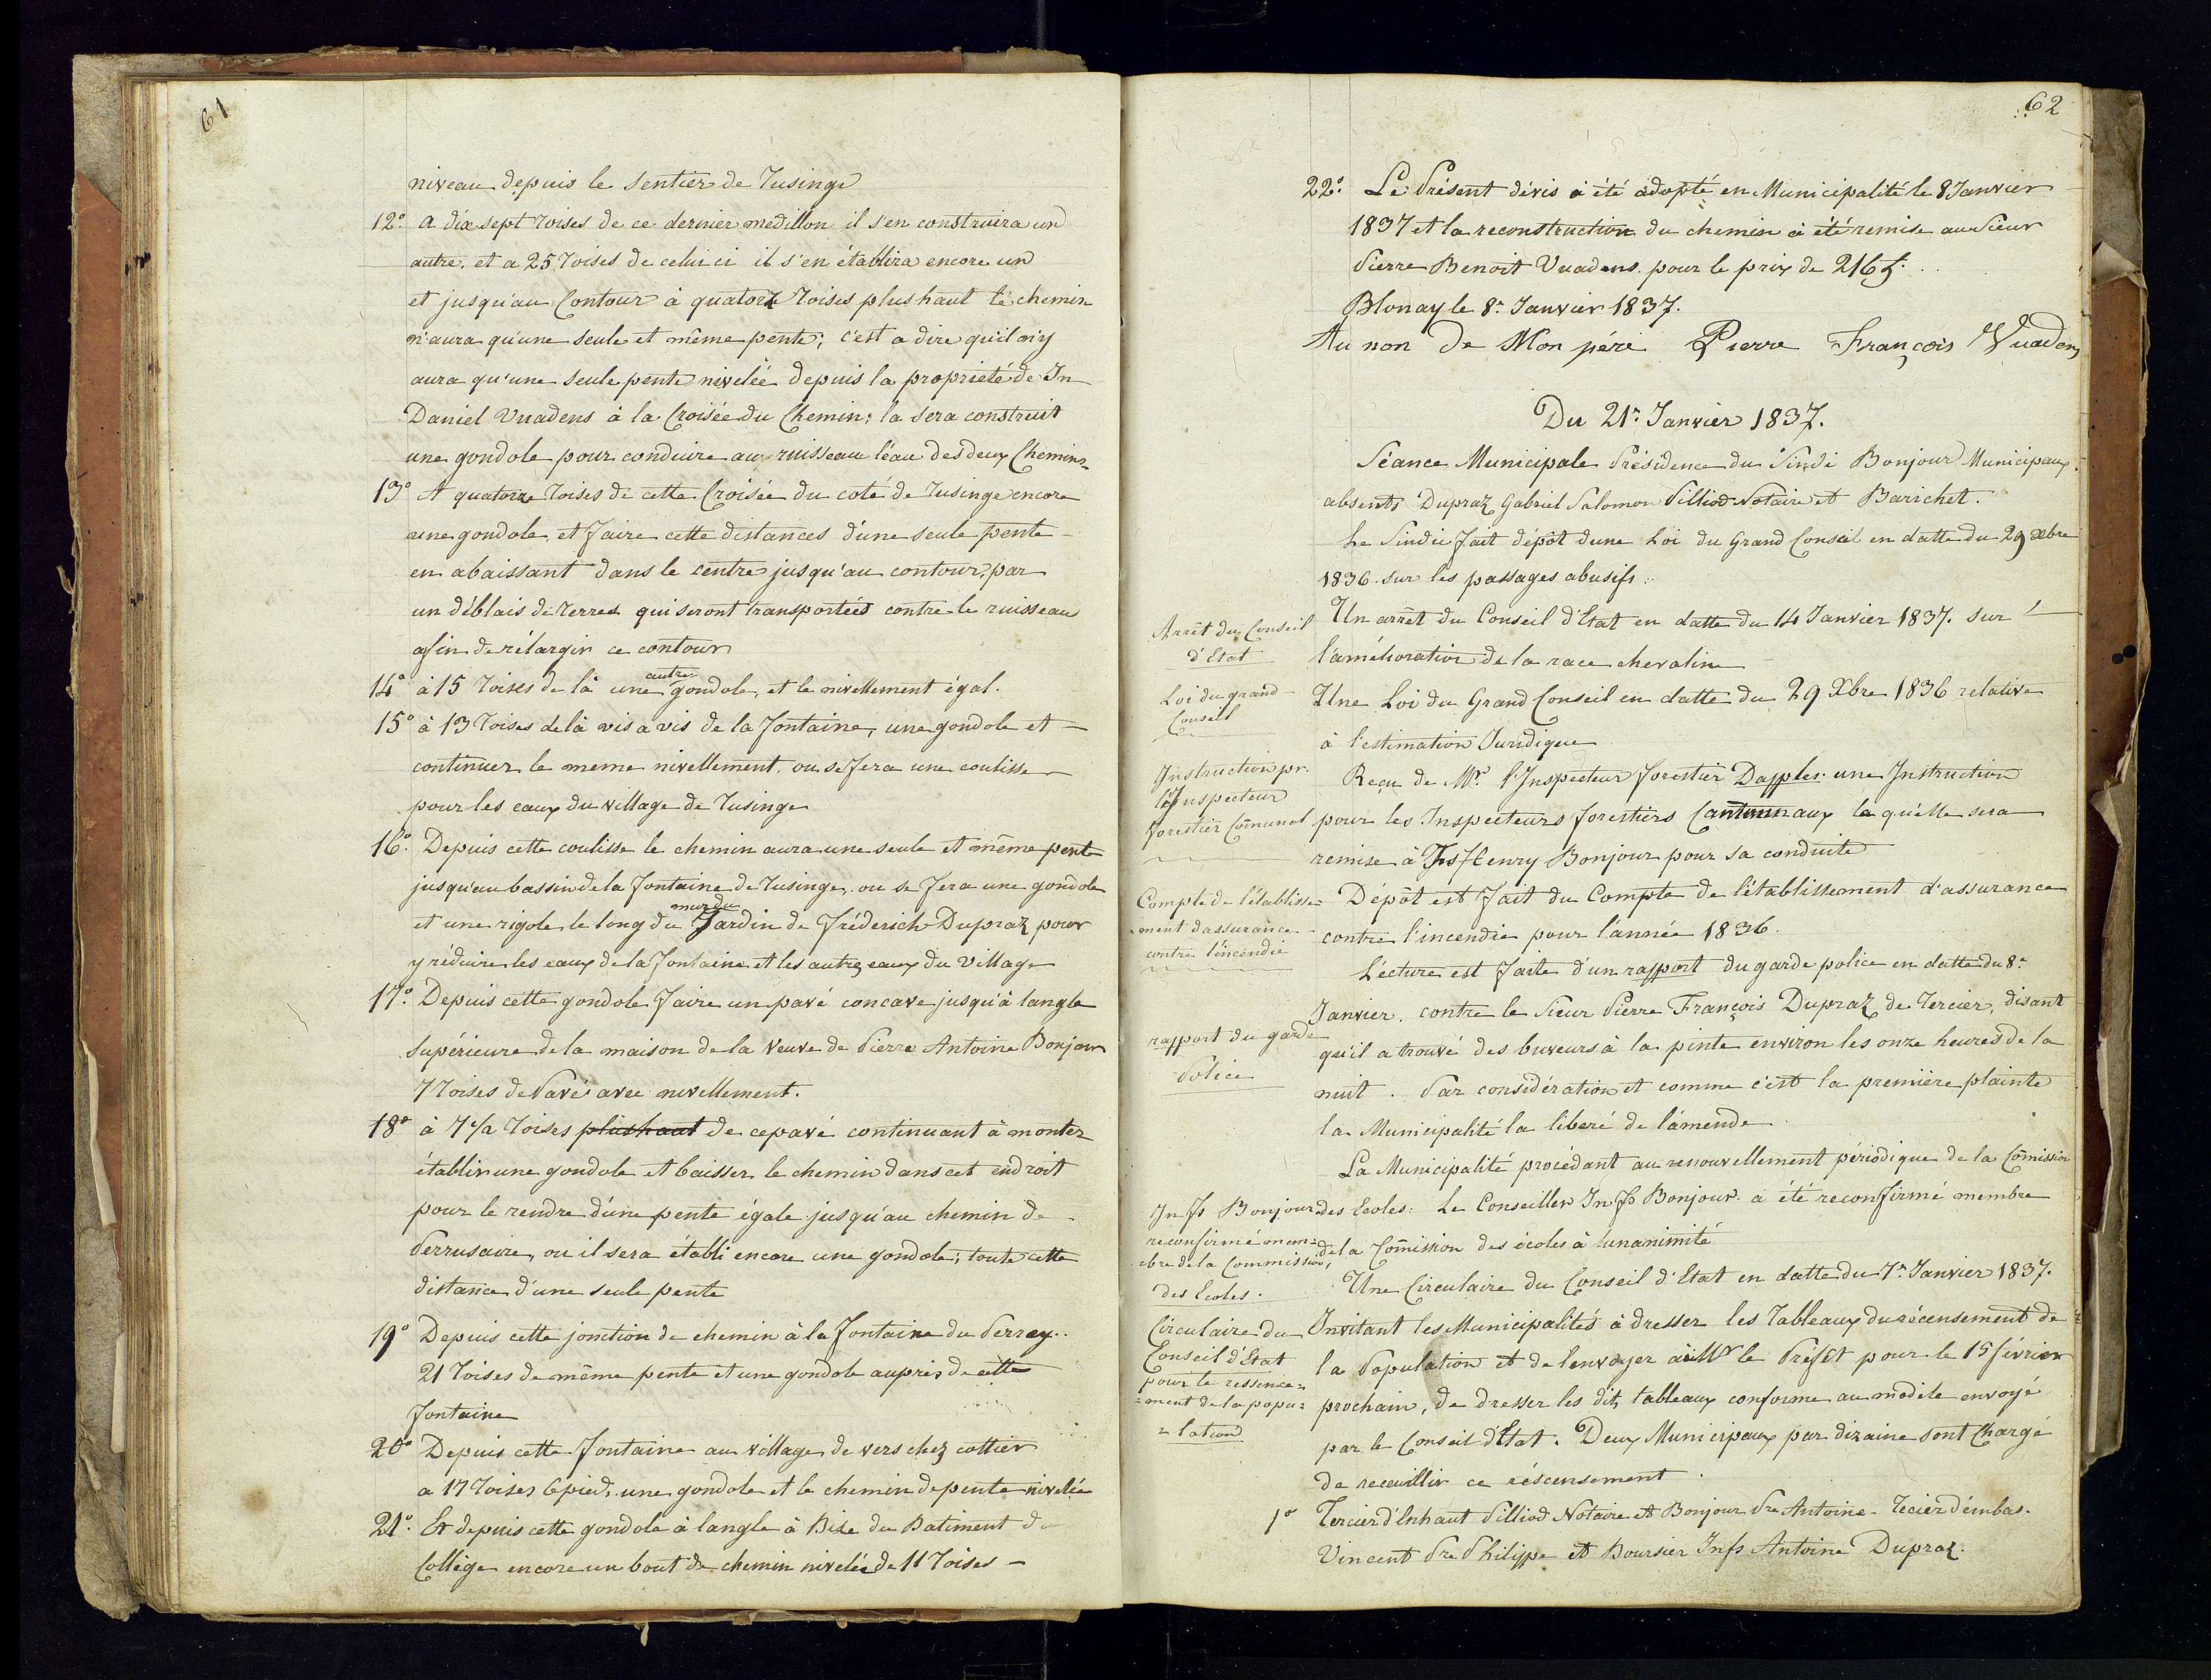 61
niveau depuis le Sentier de Tusinge
12° a dix sept Toises de ce dernier medillon il s'en construira un
autre, et a 25 Toises de celui ci il s'en établira encore un
et jusqu'au Contour à quatorze Toises plus haut le chemin
n'aura qu'une seule et même pente; c'est a dire qu'il n'y
aura qu'une seule pente nivelée depuis la propriété de Jn
Daniel Vuadens à la Croisée du Chemin; la sera construit
une gondole pour conduire aux ruisseau l'eau des deux Chemins
13° A quatorze Toises de cette Croisée du coté de Tusinge encore
une gondole et faire cette distances d'une seule pente
en abaissant dans le centre jusqu'au contour, par
un déblais de Terres qui seront transportées contre le ruisseau
afin de rélargir ce contour
14° à 15 Toises de là une autre gondole, et le nivellement égal.
15° à 13 Toises de là vis a vis de la fontaine, une gondole et
continuer le meme nivellement. ou se fera une coulisse
pour les eaux du village de Tusinge
16° Depuis cette coulisse le chemin aura une seule et même pente
jusqu'au bassin de la fontaine de Tusinge, ou se fera une gondole
et une rigole le long du mur du Jardin de Fréderich Dupraz pour
y réduire les eaux de la fontaine et les autres eaux du Village
17° Depuis cette gondole faire un pavé concave jusqu'à langle
Supérieure de la maison de la Veuve de Pierre Antoine Bonjour
7 Toises de Pavé avec nivellement.
18° à 7 1/2 Toises plus haut de ce pavé continuant à monter
établir une gondole et baisser le chemin dans cet endroit
pour le rendre d'une pente égale jusqu'au chemin de
Perrusaire, ou il sera établi encore une gondole; toute cette
distance d'une seule pente
19° Depuis cette jonction de chemin à la fontaine du Perrey..
21 Toises de même pente et une gondole auprès de cette
fontaine
20° Depuis cette fontaine au village de vers chez cottier
a 17 Toises 6 pied, une gondole et le chemin de pente nivelée
21° Et depuis cette gondole à langle à Bise du Batiment du
Collège encore un bout de chemin nivelée de 11 Toises –
62
22° Le Présent dévis a été adopté en Municipalité le 8 Janvier
1837 et la reconstruction du chemin a été remise au Sieur
Pierre Benoit Vuadens pour le prix de 216 f.
Blonay le 8e Janvier 1837.
Au non De Mon père Pierre François Vuadens
Du 21e Janvier 1837.
Séance Municipale Présidence du Sindic Bonjour Municipaux
absents Dupraz Gabriel Salomon Pilliod Notaire et Barichet.
Le Sindic fait dépôt d'une Loi du Grand Conseil en datte du 29 Xbre
1836. sur les passages abusifs.
Arrêt du Conseil
d'Etat
Un arrêt du Conseil d'Etat en datte du 14 Janvier 1837. sur
l'amélioration de la race chevaline
Loi du grand
Conseil
Une Loi du Grand Conseil en datte du 29 Xbre 1836 relative
à l'estimation Juridique
Instruction pr.
l'Inspecteur
forestier Communal
Reçu de Mr. l'Inspecteur forestier Dapples une Instruction
pour les Inspecteurs forestiers Cantonnaux la qu'elle sera
remise à Fs Henry Bonjour pour sa conduite
Compte de l'établisse=
=ment d'assurance
contre l'incendie
Dépôt est fait du Compte de l'établissement d'assurance
contre l'incendie pour l'année 1836.
Lécture est faite d'un rapport du garde police en datte du 8e
rapport du garde
Police
Janvier. contre le Sieur Pierre François Dupraz de Tercier, disant
qu'il a trouvé des buveurs à la pinte environ les onze heures de la
nuit. Par considération et comme c'est la première plainte
la Municipalité la liberé de l'amende
La Municipalité procédant au renouvellement périodique de la Commission
Jn fs Bonjour
reconfirmé mem=
=bre de la Commission
des Ecoles.
des Ecoles: Le Conseiller Jn fs Bonjour. a été reconfirmé membre
de la Commission des écoles à lunanimité
Une Circulaire du Conseil d'Etat en datte du 7e Janvier 1837.
Circulaire du
Conseil d'Etat
pour le ressence=
=ment de la popu=
=lation
Invitant les Municipalités à dresser les Tableaux du récensement de
la Population et de l'envoyer à Mr le Préfet pour le 15 février
prochain, de dresser les dits tableaux conforme au modèle envoyé
par le Conseil d'Etat. Deux Municipaux par dizaine sont Chargé
de receuillir ce réscensement.
1° Tercier d'Enhaut Pilliod Notaire et Bonjour Pre Antoine. Tecier d'embas.
Vincent Pre Philippe et Boursier Jn fs Antoine Dupraz.